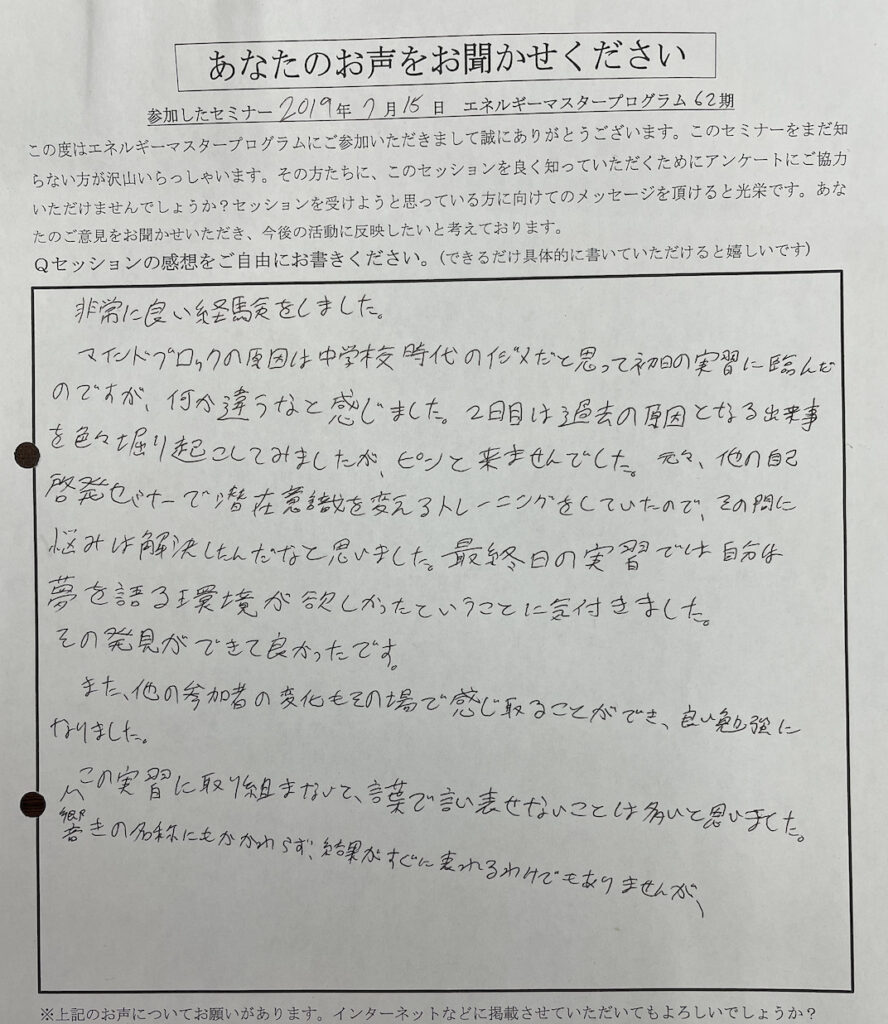 あなたのお声をお聞かせください
参加したセミナー 2019年 7月 15日 エネルギーマスタープログラム 62期
この度はエネルギーマスタープログラムにご参加いただきまして誠にありがとうございます。このセミナーをまだ知
らない方が沢山いらっしゃいます。その方たちに、このセッションを良く知っていただくためにアンケートにご協力
いただけませんでしょうか？セッションを受けようと思っている方に向けてのメッセージを頂けると光栄です。あな
たのご意見をお聞かせいただき、今後の活動に反映したいと考えております。
Ｑセッションの感想をご自由にお書きください。（できるだけ具体的に書いていただけると嬉しいです）
非常に良い経験をしました。
マインドブロックの原因は中学校時代のイジメだと思って初日の実習に臨んだ
のですが、何か違うなと感じました。2日目は過去の原因となる出来事
を色々堀り起こしてみましたが、ピンと来ませんでした。元々、他の自己
啓発セミナーで潜在意識を変えるトレーニングをしていたので、その間に
悩みは解決したんだなと思いました。最終日の実習では自分は
夢を語る環境が欲しかったということに気付きました。
その発見ができて良かったです。
また、他の参加者の変化もその場で感じ取ることができ、良い勉強に
なりました。
この実習に取り組まないで、言葉で言い表せないことは多いと思いました。
響きの名称にもかかわらず、結果がすぐに表れるわけでもありませんが、
※上記のお声についてお願いがあります。インターネットなどに掲載させていただいてもよろしいでしょうか？